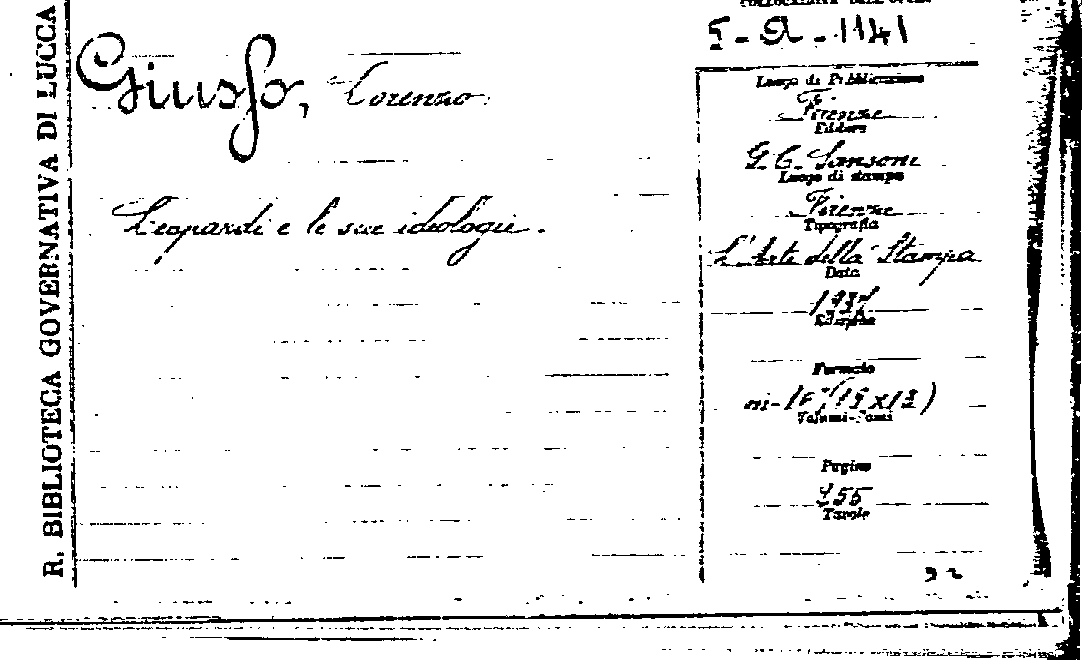 R. BIBLIOTECA GOVERNATIVA DI LUCCA
Giusso, Lorenzo
Leopardi e le sue ideologie.
COLLOCAZIONE DELL'OPERA
Luogo di Pubblicazione
Firenze
Editore
G. C. Sansoni
Luogo di stampa
Firenze
Tipografia
L'Arte della Stampa
Data
Formato
in-16 (19 x 13)
Volumi-Tomi
Pagine
Tavole